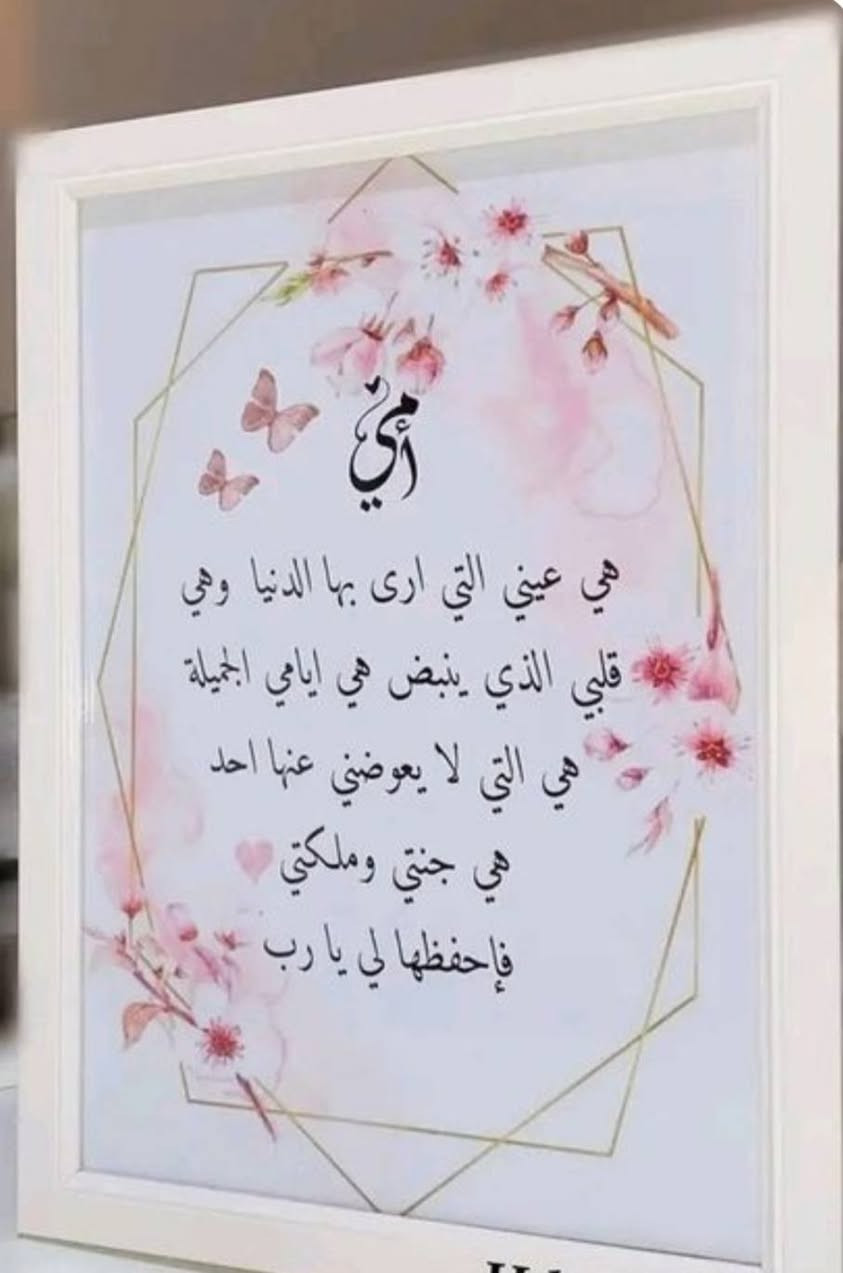 أمي
هي عيني التي ارى بها الدنيا وهي
قلبي الذي ينبض هي ايامي الجميلة
هي التي لا يعوضني عنها احد
هي جنتي وملكتي
فإحفظها لي يا رب